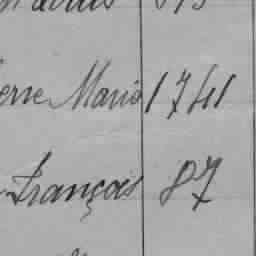 erre Marie 1741
François 87